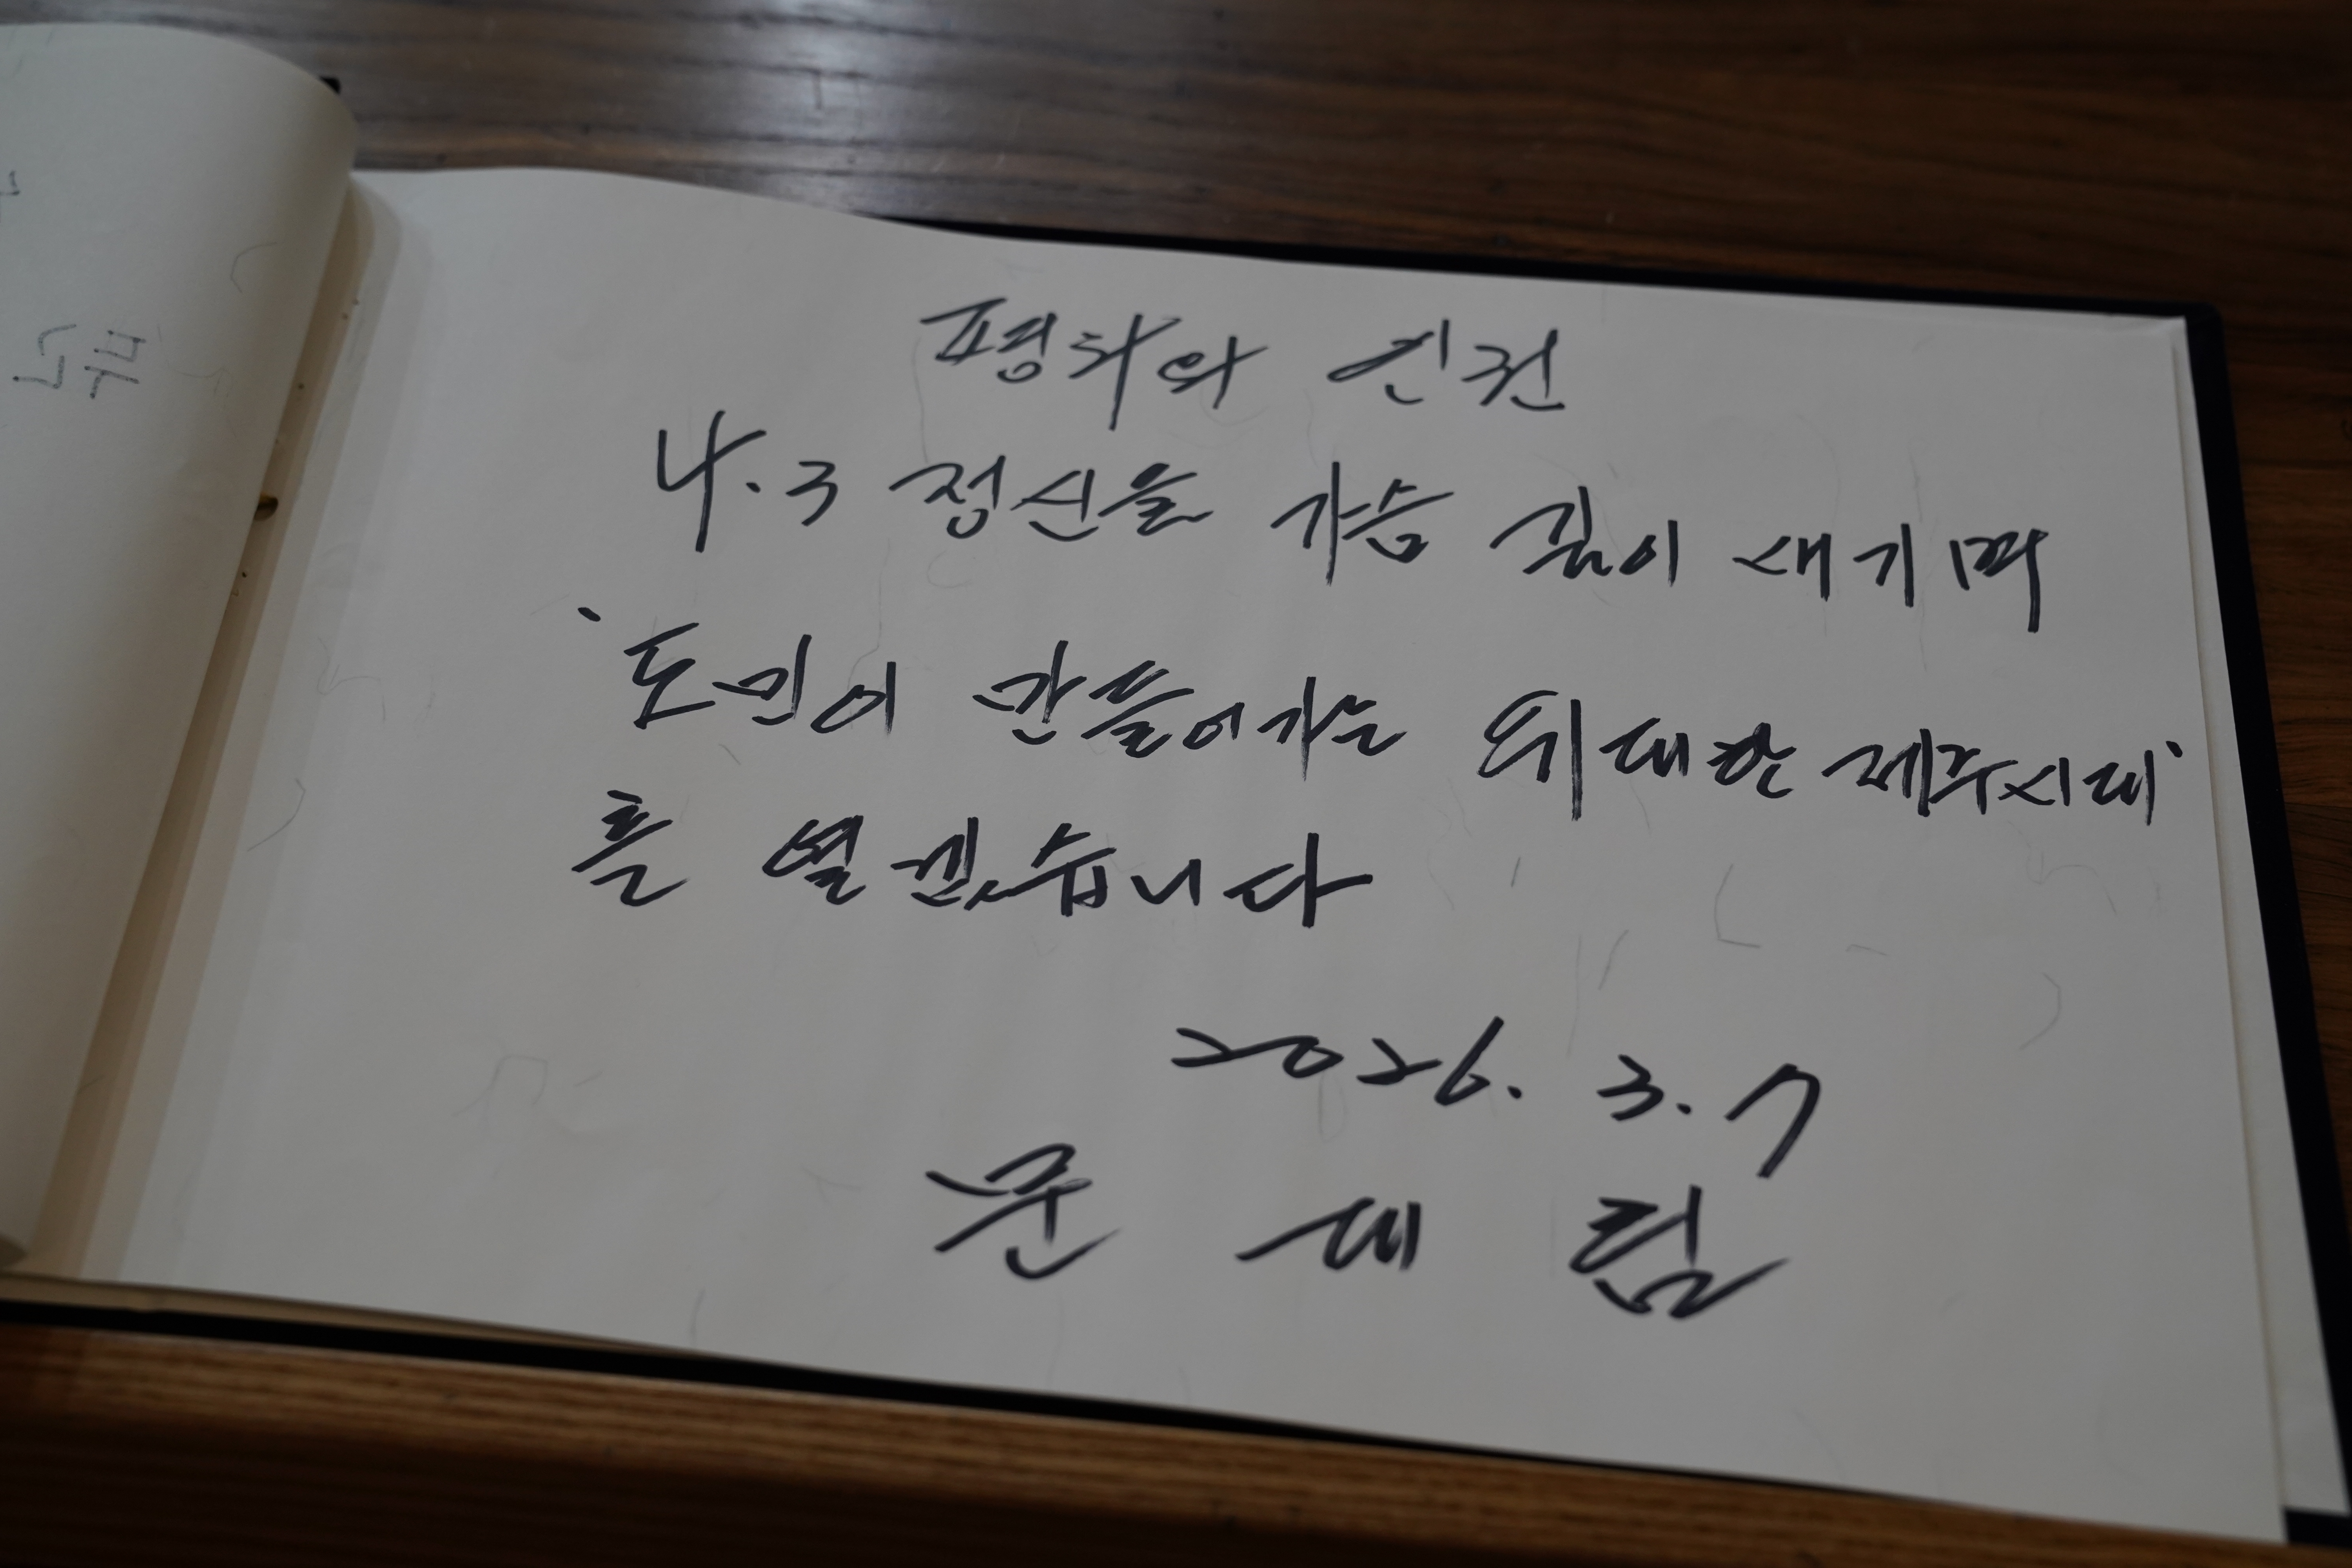 평화와 인권
4.3 정신을 가슴 깊이 새기며
'도민이 만들어가는 위대한 제주시대'
를 열겠습니다
2026. 3. 7
문 대 림